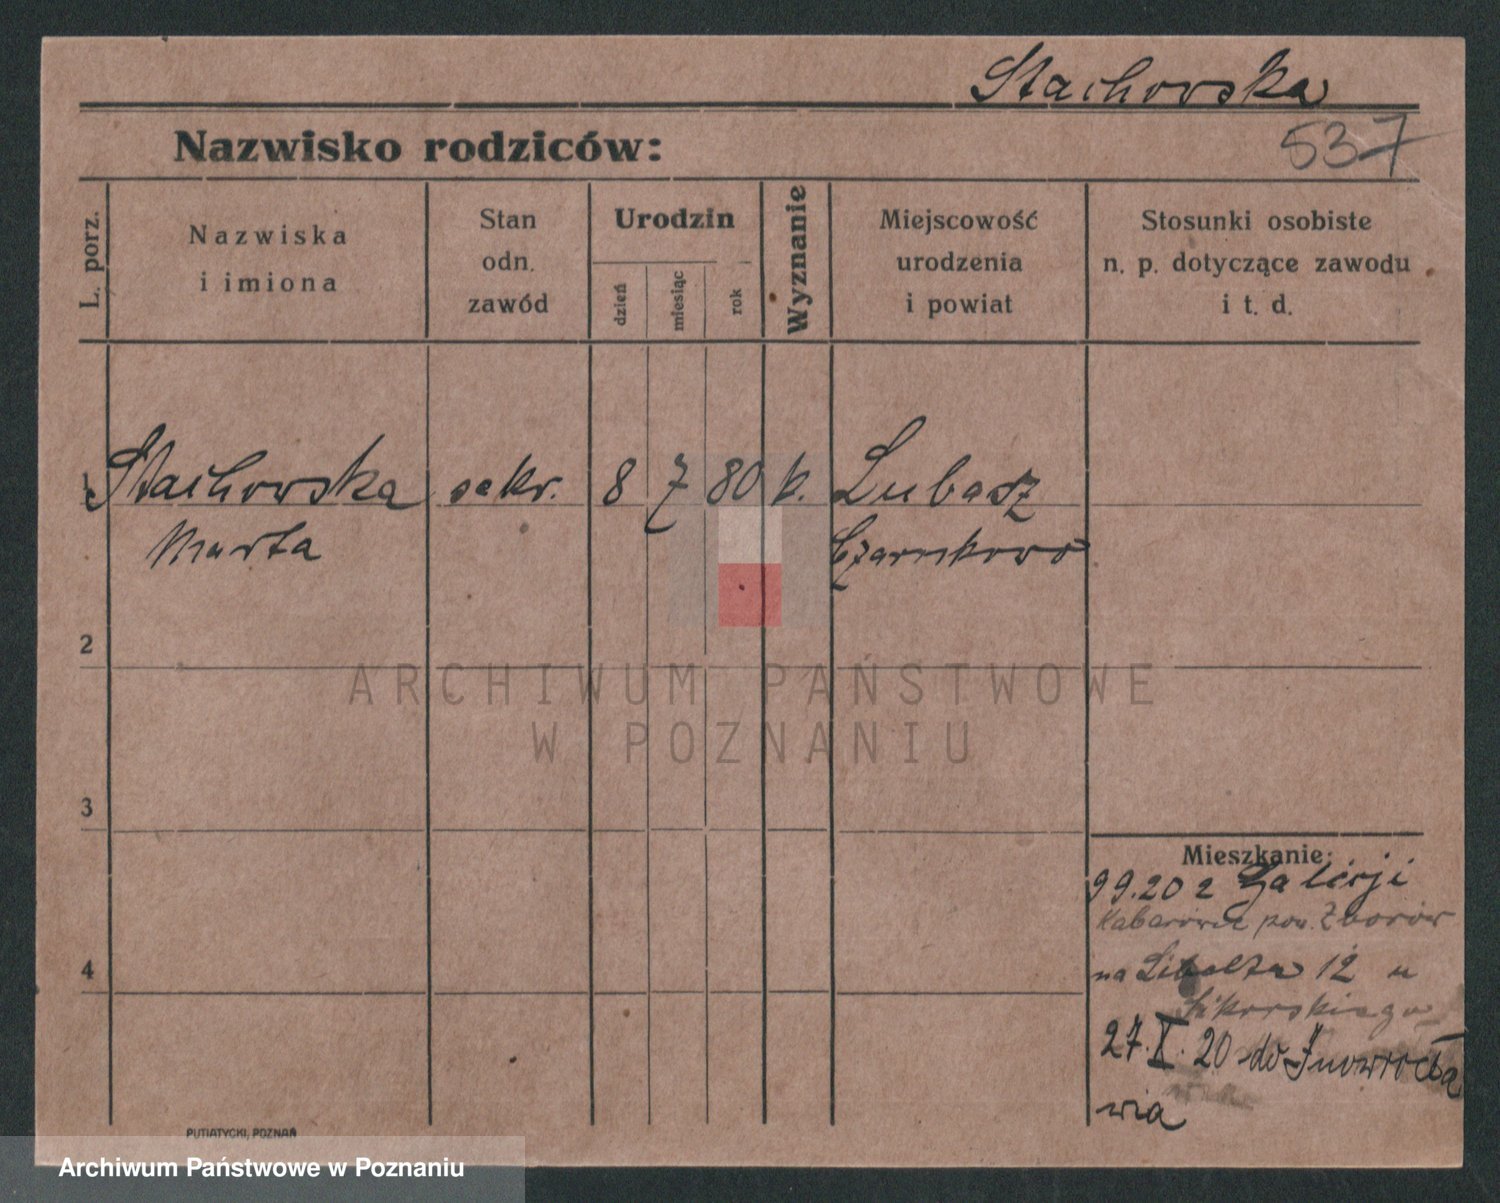 Stachowska
537
Nazwisko rodziców:
L. porz.
Nazwiska
i imiona
Stan
odn.
zawód
Urodzin
dzień
miesiąc
rok
Wyznanie
Miejscowość
urodzenia
i powiat
Stosunki osobiste
n. p. dotyczące zawodu
i t. d.
1 Stachowska sekr. 8 7 80 k. Lubasz
Marta Czarnkowo
2
ARCHIWUM PAŃSTWOWE
W POZNANIU
3
Mieszkanie:
9 9. 20 z Galicji
Kabarowce pow. Zborów
4
na Libelta 12 u
Sikorskiego
27. X. 20 do Inowrocła
wia
PUTIATYCKI, POZNAŃ
Archiwum Państwowe w Poznaniu